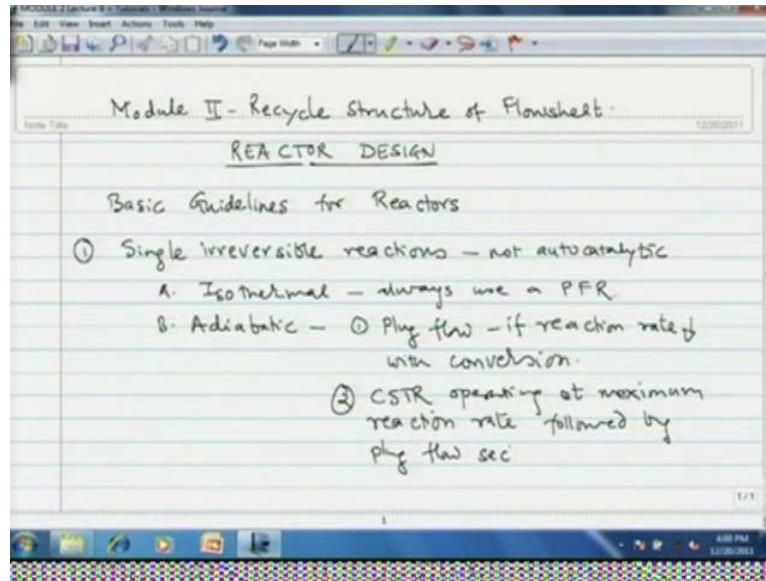 MODULE 2 Lecture 8 + Tutorials - Windows Journal
File Edit View Insert Actions Tools Help
Page Width
Module II - Recycle Structure of Flowsheet.
Note Title
12/20/2011
REACTOR DESIGN
Basic Guidelines for Reactors
① Single irreversible reactions - not autocatalytic
A. Isothermal - always use a PFR
B. Adiabatic - ① Plug flow - if reaction rate ↓
with conversion.
② CSTR operating at maximum
reaction rate followed by
plug flow sec
1/1
1
4:00 PM
12/20/2011